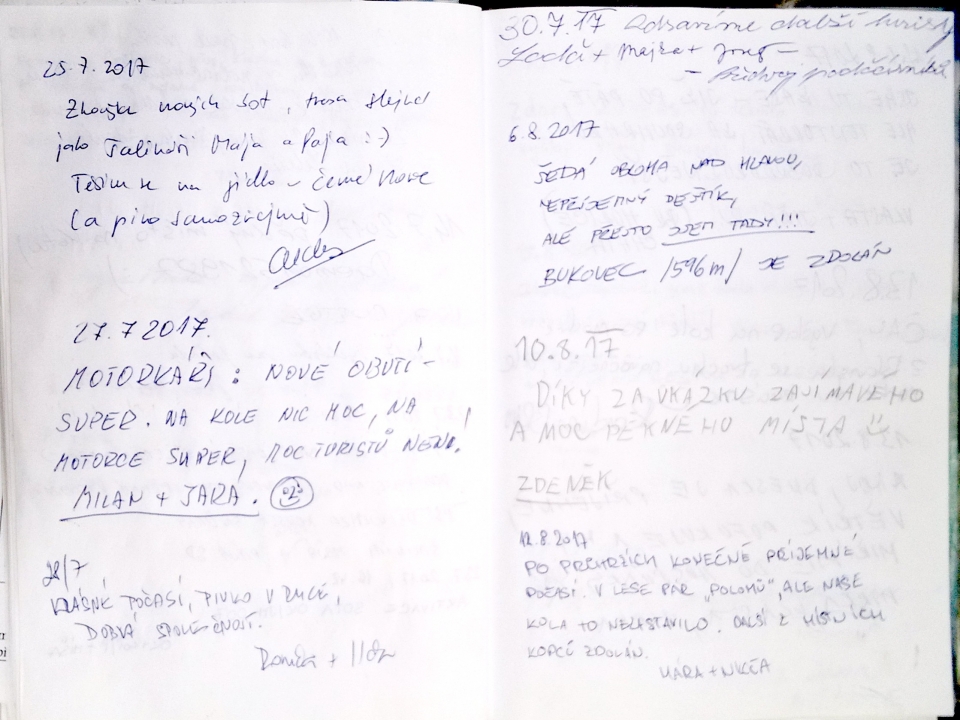 25.7.2017
Zkouška nových bot, trasa stejná
jako Tatínkové Mája a Pája :)
Těším se na jídlo – černé
(a pivo samozřejmě)
27.7 2017.
MOTORKÁŘI: NOVÉ OBUTÍ -
SUPER. NA KOLE NIC MOC, NA
MOTORCE SUPER, MOC TURISTŮ NENÍ!
MILAN + JARA.
28/7
KRÁSNÉ POČASÍ, PIVKO V RUCE,
DOBRÁ SPOLEČNOST.
30.7.17 další turisty
+ Majka +
6.8.2017
ŠEDÁ OBLOHA NAD HLAVOU,
NEPŘÍJEMNÝ DEŠTÍK,
ALE PŘESTO JSEM TADY!!!
BUKOVEC /596m/ JE ZDOLÁN
10.8.17
DÍKY ZA UKÁZKU ZAJÍMAVÉHO
A MOC PĚKNÉHO MÍSTA
ZDENĚK
12.8.2017
PO PRCHRŽÍCH KONEČNĚ PŘÍJEMNÉ
POČASÍ. V LESE PÁR „POLOMŮ", ALE NAŠE
KOLA TO NEZASTAVILO. DALŠÍ Z MÍSTNÍCH
KOPCŮ ZDOLÁN.
MÁRA + NIKČA